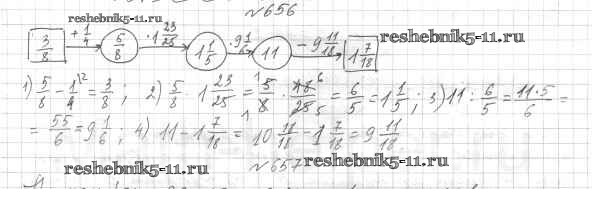 №656
reshebnik5-11.ru
3/8 +1/4 → 5/8 ·1 23/25 → 1 1/5 ·9 1/6 → 11 −9 11/18 → 1 7/18
reshebnik5-11.ru
1) 5/8 − 1/4 \2 = 3/8; 2) 5/8 · 1 23/25 = 5/8 · 48/25 = 6/5 = 1 1/5; 3) 11 : 6/5 = 11·5/6 =
= 55/6 = 9 1/6; 4) 11 − 1 7/18 = 10 11/18 − 1 7/18 = 9 11/18.
reshebnik5-11.ru
№657
reshebnik5-11.ru